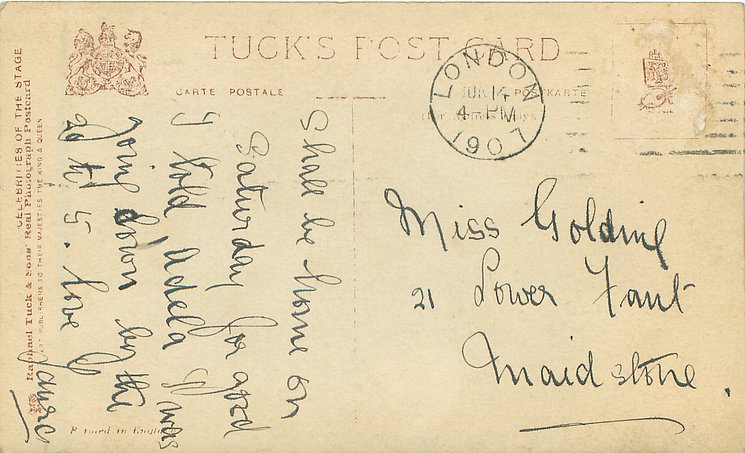 TUCK'S POST CARD
CARTE POSTALE
POSTKARTE
LONDON
JUN 14
4 - PM
1907
CELEBRITIES OF THE STAGE
Raphael Tuck & Sons' Real Photograph Postcard
ART PUBLISHERS TO THEIR MAJESTIES THE KING & QUEEN
Shall be home on
Saturday for good
I told Adela I was
going down by the
20 to 5. love
Miss Golding
21 Lower Fant
Maidstone.
Printed in England